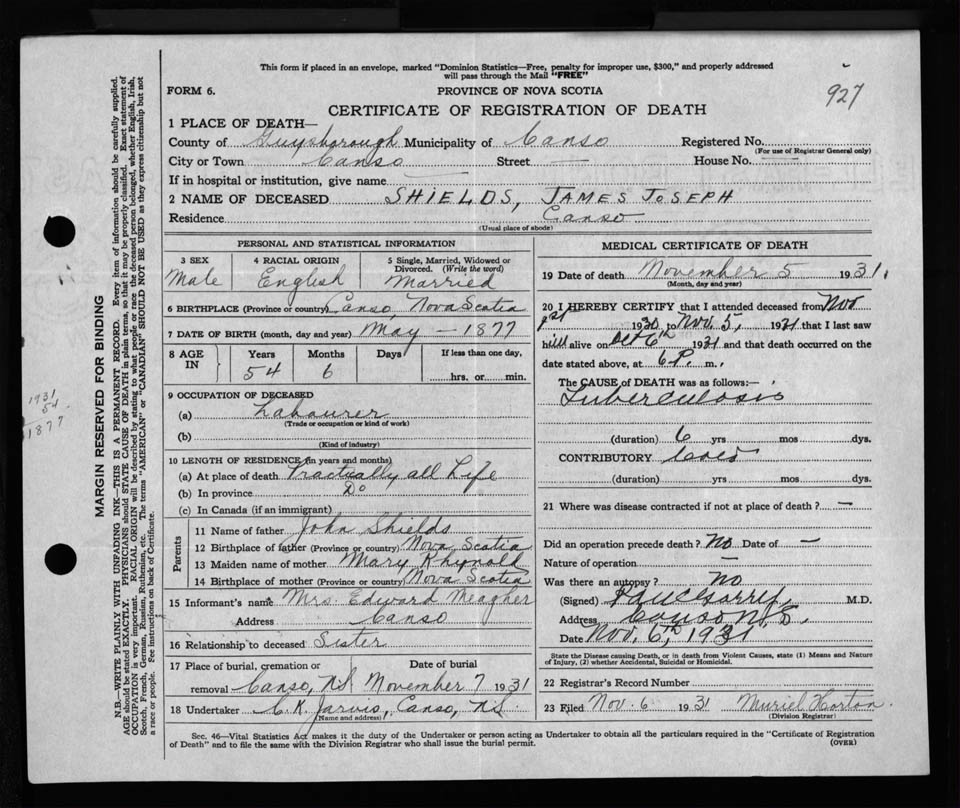 This form if placed in an envelope, marked "Dominion Statistics—Free, penalty for improper use, $300," and properly addressed
will pass through the Mail "FREE"
927
FORM 6.
PROVINCE OF NOVA SCOTIA
CERTIFICATE OF REGISTRATION OF DEATH
1 PLACE OF DEATH—
County of Guysborough Municipality of Canso Registered No.
(For use of Registrar General only)
City or Town Canso Street — House No. —
If in hospital or institution, give name —
2 NAME OF DECEASED SHIELDS, JAMES JOSEPH
Residence Canso
(Usual place of abode)
PERSONAL AND STATISTICAL INFORMATION
3 SEX 4 RACIAL ORIGIN 5 Single, Married, Widowed or
Divorced. (Write the word)
Male English Married
6 BIRTHPLACE (Province or country) Canso, Nova Scotia
7 DATE OF BIRTH (month, day and year) May — 1877
8 AGE IN Years Months Days If less than one day,
54 6 hrs. or min.
9 OCCUPATION OF DECEASED
(a) Labourer
(Trade or occupation or kind of work)
(b)
(Kind of industry)
10 LENGTH OF RESIDENCE (in years and months)
(a) At place of death Practually all Life
(b) In province Do
(c) In Canada (if an immigrant)
Parents
11 Name of father John Shields
12 Birthplace of father (Province or country) Nova Scotia
13 Maiden name of mother Mary Rhynold
14 Birthplace of mother (Province or country) Nova Scotia
15 Informant's name Mrs. Edward Meagher
Address Canso
16 Relationship to deceased Sister
17 Place of burial, cremation or Date of burial
removal Canso, N.S November 7 1931
18 Undertaker C. R. Jarvis, Canso, N.S.
(Name and address)
MEDICAL CERTIFICATE OF DEATH
19 Date of death November 5 1931.
(Month, day and year)
20 I HEREBY CERTIFY that I attended deceased from Nov
1st 1930 to Nov. 5, 1931 that I last saw
him alive on Oct 6th 1931 and that death occurred on the
date stated above, at 6 P. m.
The CAUSE OF DEATH was as follows:—
Tuberculosis
(duration) 6 yrs mos dys.
CONTRIBUTORY
(duration) yrs. mos. dys.
21 Where was disease contracted if not at place of death? —
Did an operation precede death? No Date of —
Nature of operation —
Was there an autopsy? no
(Signed) M.D.
Address Canso N.S.
Date Nov. 6th, 1931
State the Disease causing Death, or in death from Violent Causes, state (1) Means and Nature
of Injury, (2) whether Accidental, Suicidal or Homicidal.
22 Registrar's Record Number
23 Filed Nov. 6 1931 Muriel Horton
(Division Registrar)
Sec. 46—Vital Statistics Act makes it the duty of the Undertaker or person acting as Undertaker to obtain all the particulars required in the "Certificate of Registration
of Death" and to file the same with the Division Registrar who shall issue the burial permit. (OVER)
MARGIN RESERVED FOR BINDING
N.B.—WRITE PLAINLY WITH UNFADING INK—THIS IS A PERMANENT RECORD. Every item of information should be carefully supplied.
AGE should be stated EXACTLY. PHYSICIANS should STATE CAUSE OF DEATH in plain terms, so that it may be properly classified. Exact statement of
OCCUPATION is very important. RACIAL ORIGIN will be described by stating to what people or race the deceased person belonged, whether English, Irish,
Scotch, French, German, Russian, Ruthenian, etc. The terms "AMERICAN" or "CANADIAN" SHOULD NOT BE USED as they express citizenship but not
a race or people. See instructions on back of Certificate.
1931
54
1877